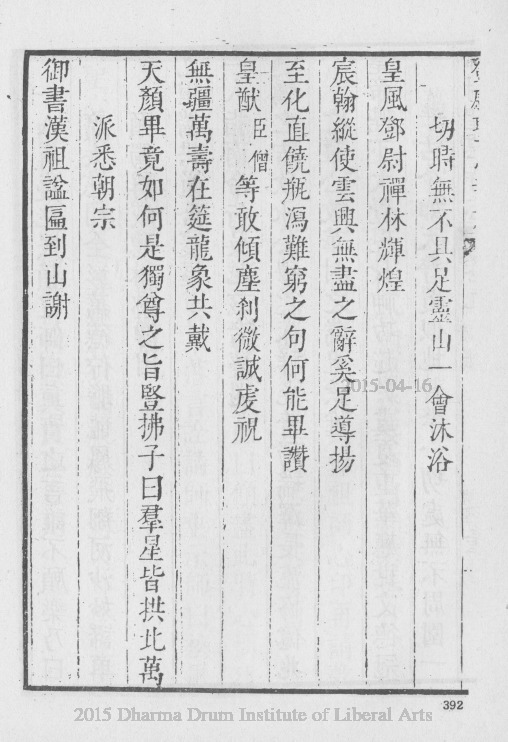 切時無不具足靈山一會沐浴
皇風鄧尉禪林輝煌
宸翰縱使雲興無盡之辭奚足導揚
至化直饒瓶瀉難窮之句何能畢讚
皇猷臣僧等敢傾塵刹微誠虔祝
無疆萬壽在筵龍象共戴
天顏畢竟如何是獨尊之旨豎拂子曰羣星皆拱北萬
派悉朝宗
御書漢祖謐匾到山謝
2015-04-16
392
2015 Dharma Drum Institute of Liberal Arts